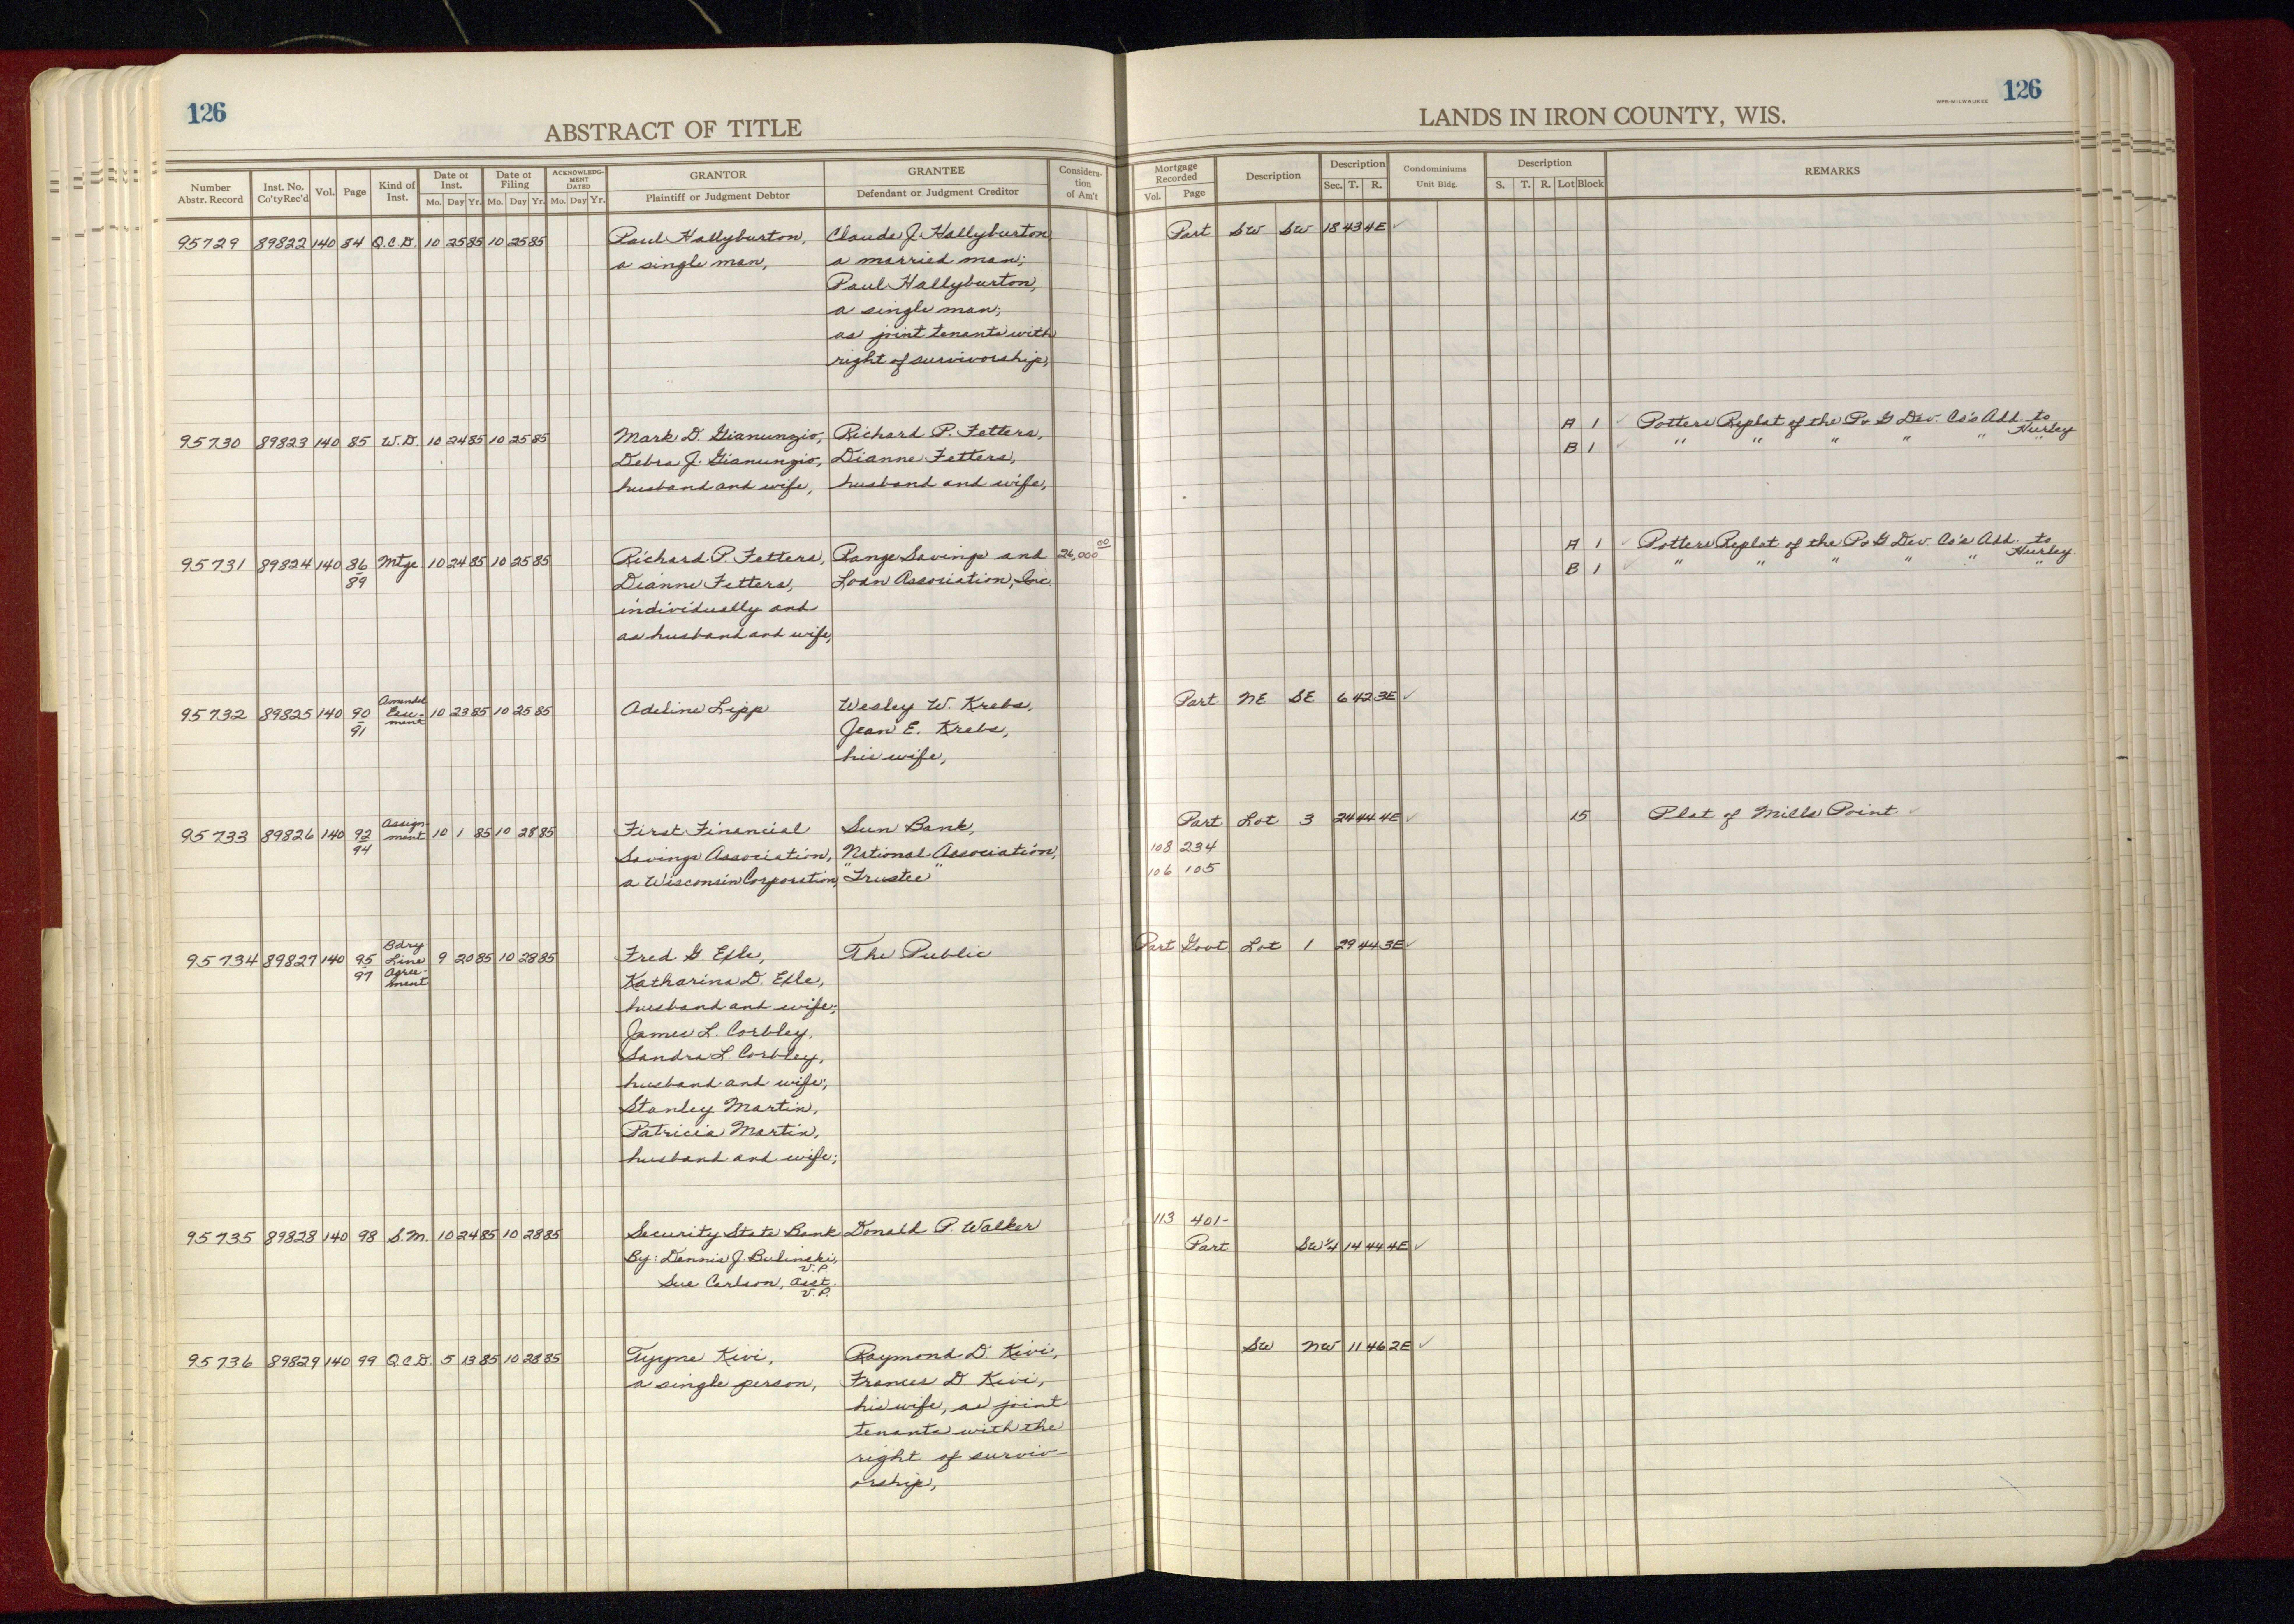 126
ABSTRACT OF TITLE
LANDS IN IRON COUNTY, WIS.
WPB-MILWAUKEE
126
Number Abstr. Record Inst. No. Co'ty Rec'd Vol. Page Kind of Inst. Date of Inst. Mo. Day Yr. Date of Filing Mo. Day Yr. ACKNOWLEDGMENT DATED Mo. Day Yr. GRANTOR Plaintiff or Judgment Debtor GRANTEE Defendant or Judgment Creditor Consideration of Am't
Mortgage Recorded Vol. Page Description Description Sec. T. R. Condominiums Unit Bldg. Description S. T. R. Lot Block REMARKS
95729 89822 140 84 Q.C.D. 10 25 85 10 25 85 Paul Hallyburton, Claude J. Hallyburton Part SW SW 18 43 4E ✓
a single man, a married man;
Paul Hallyburton,
a single man;
as joint tenants with
right of survivorship,
95730 89823 140 85 W.D. 10 24 85 10 25 85 Mark D. Gianunzio, Richard P. Fetters, A 1 ✓ Potters Replat of the P & G Dev. Co's Add. to Hurley
Debra J. Gianunzio, Dianne Fetters, B 1 ✓ " " " " " "
husband and wife, husband and wife,
95731 89824 140 86/89 Mtge 10 24 85 10 25 85 Richard P. Fetters, Range Savings and 26,000 00 A 1 ✓ Potters Replat of the P & G Dev. Co's Add. to Hurley
Dianne Fetters, Loan Association, Inc. B 1 ✓ " " " " " "
individually and
as husband and wife,
95732 89825 140 90/91 Amended Ease-ment 10 23 85 10 25 85 Adeline Lipp Wesley W. Krebs, Part NE SE 6 42 3E ✓
Jean E. Krebs,
his wife,
95733 89826 140 92/94 Assign-ment 10 1 85 10 28 85 First Financial Sun Bank, Part Lot 3 24 44 4E ✓ 15 Plat of Mills Point ✓
Savings Association, National Association, 108 234
a Wisconsin Corporation, "Trustee" 106 105
95734 89827 140 95/97 Bdry Line Agree-ment 9 20 85 10 28 85 Fred G. Exle, The Public Part Govt Lot 1 29 44 3E ✓
Katharina D. Exle,
husband and wife;
James L. Corbley,
Sandra L. Corbley,
husband and wife;
Stanley Martin,
Patricia Martin,
husband and wife;
95735 89828 140 98 S.M. 10 24 85 10 28 85 Security State Bank Donald P. Walker 113 401-
By: Dennis J. Bulinski, V.P. Part SW¼ 14 44 4E ✓
Sue Carlson, Asst. V.P.
95736 89829 140 99 Q.C.D. 5 13 85 10 28 85 Tyyne Kivi, Raymond D. Kivi, SW NW 11 46 2E ✓
a single person, Frances D. Kivi,
his wife, as joint
tenants with the
right of surviv-
orship,